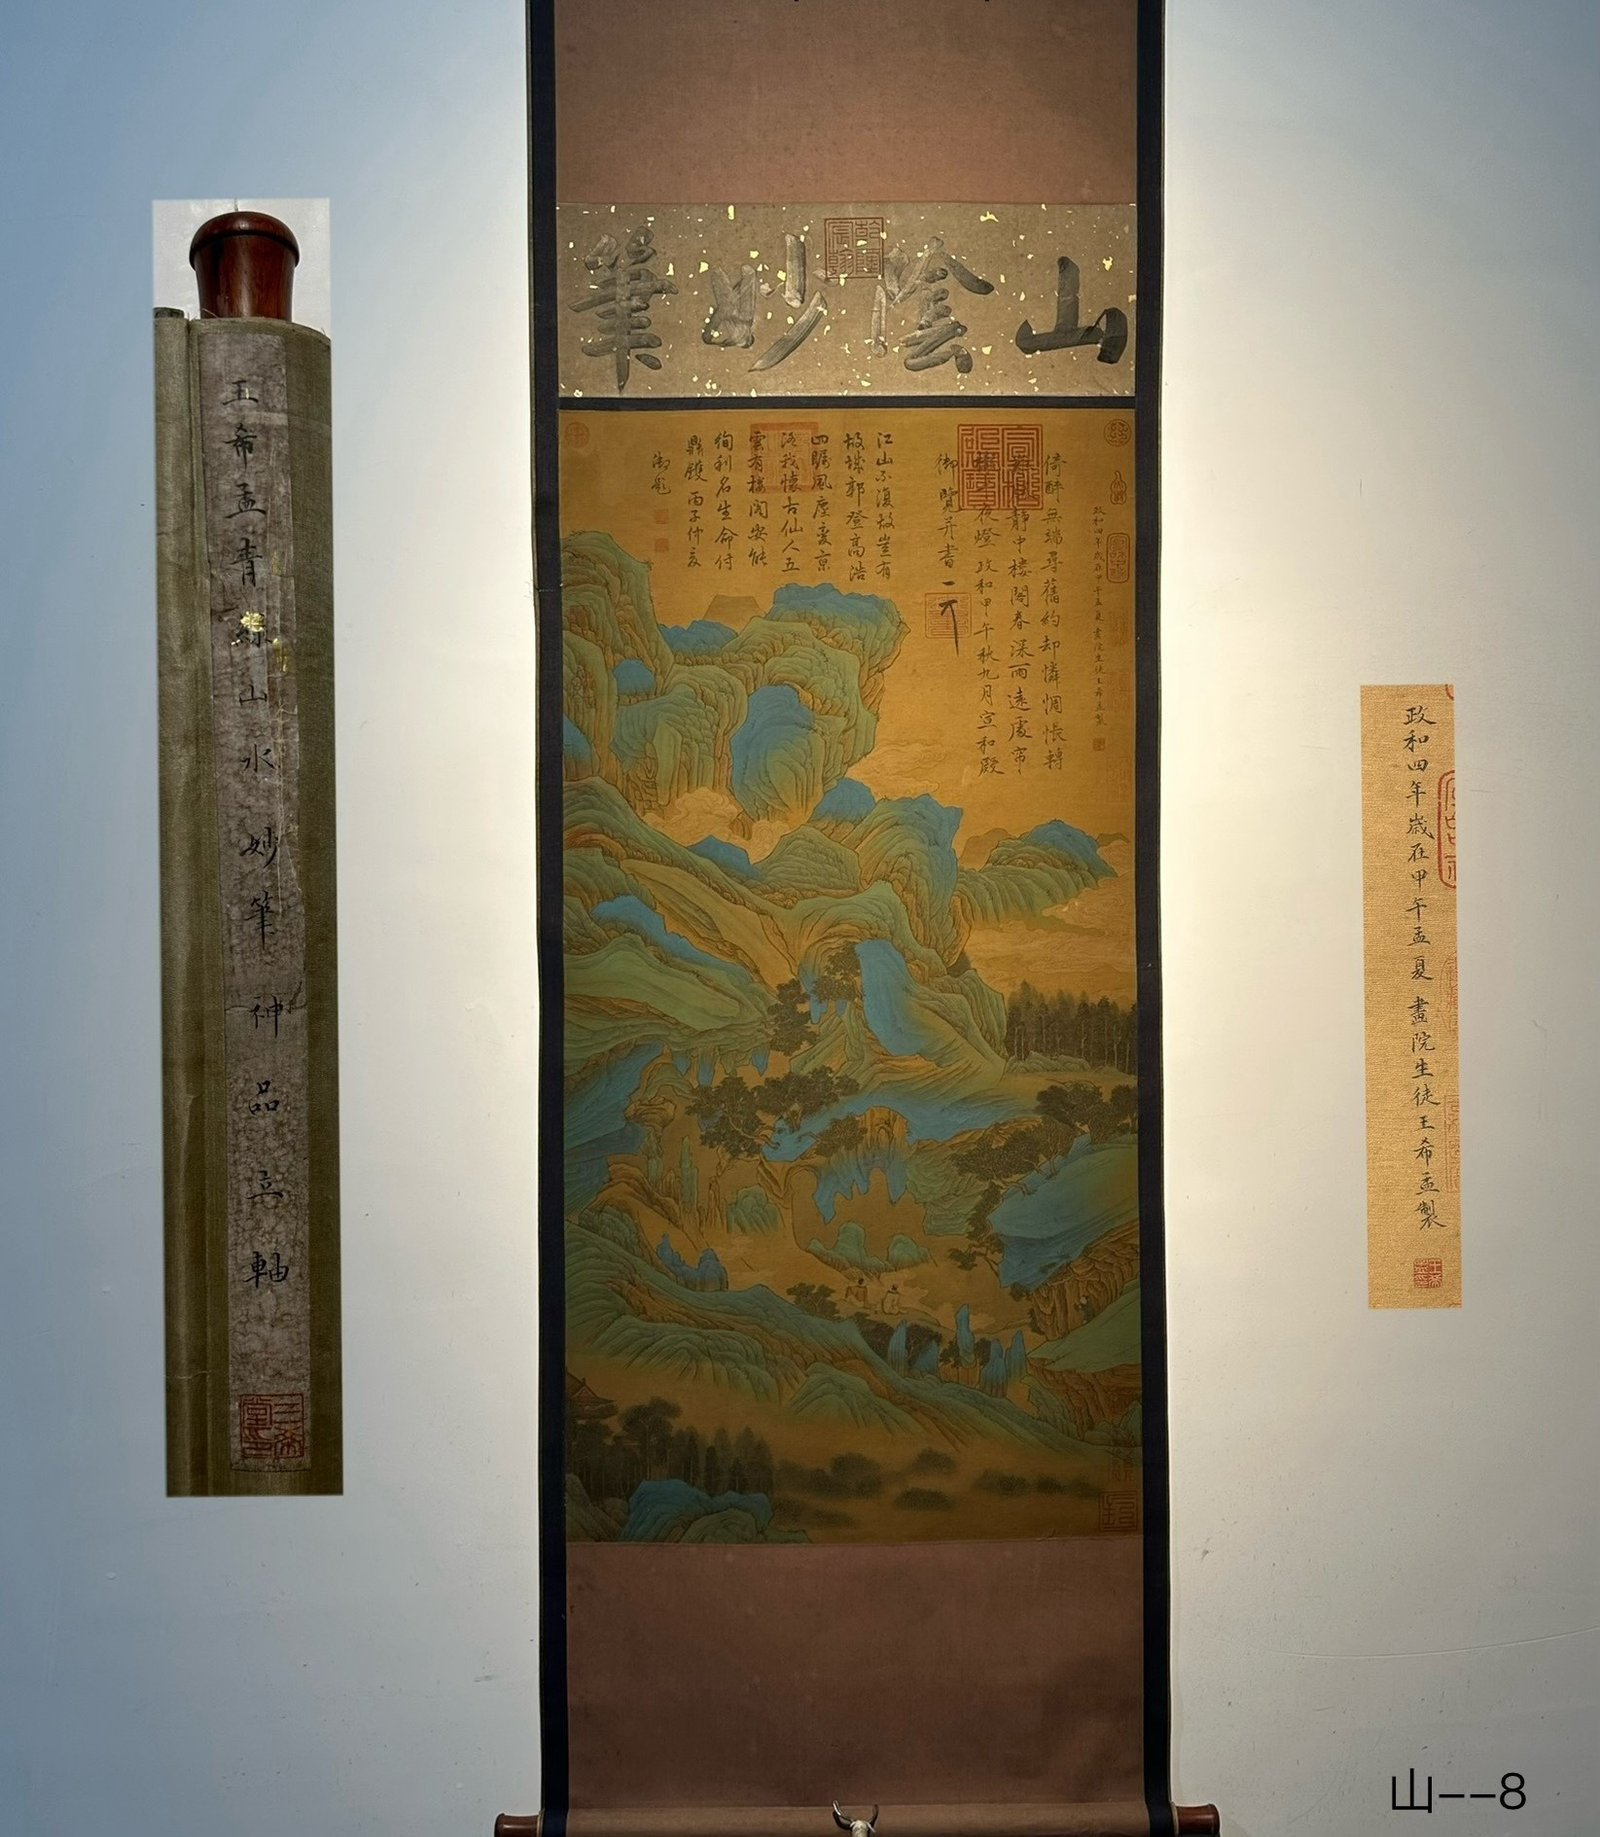 山陰妙筆
乾隆宸翰
王希孟青綠山水妙筆神品立軸
三希堂
政和四年歲在甲午孟夏畫院生徒王希孟製
倚醉無端尋舊約却憐惆悵轉
靜中樓閣春深雨遠處帘
夜燈政和甲午秋九月宣和殿
御覽并書
江山不復故豈有
故城郭登高浩
四矚風塵京
洛我懷古仙人五
雲有樓閣安能
徇利名生命付
鼎鑊丙子仲
御
政和四年歲在甲午孟夏畫院生徒王希孟製
山--8